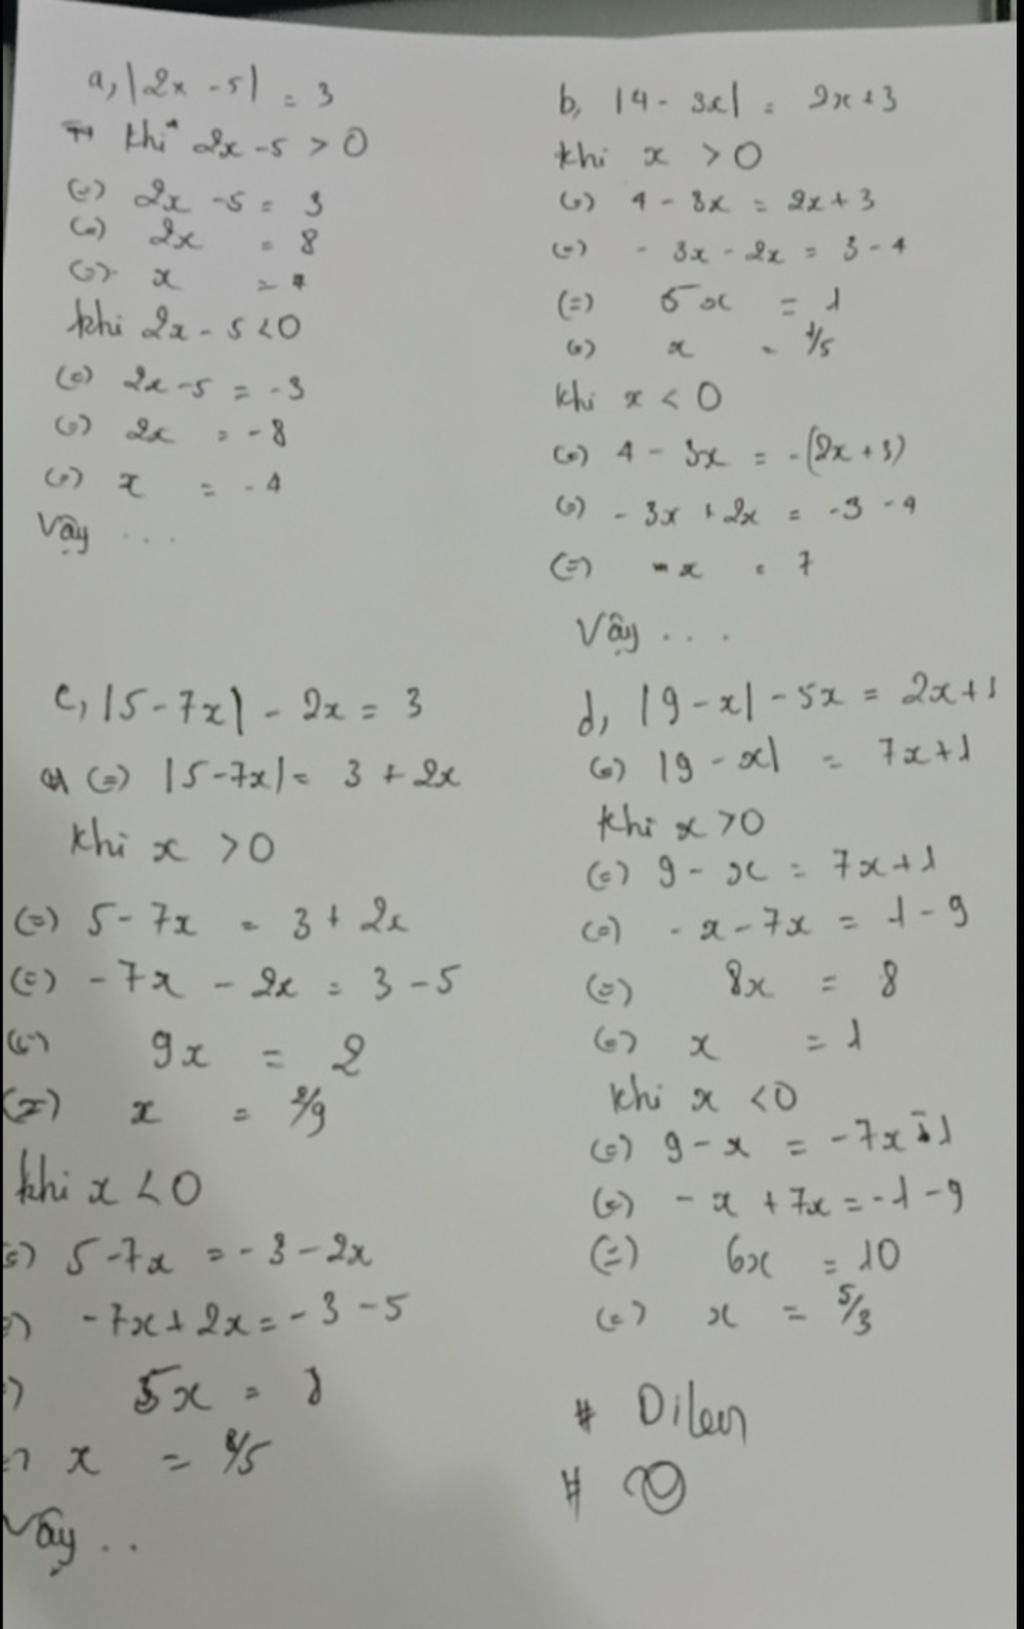 a, |2x - 5| = 3
khi 2x - 5 > 0
(=) 2x - 5 = 3
(=) 2x = 8
(=) x = 4
khi 2x - 5 < 0
(=) 2x - 5 = -3
(=) 2x = -8
(=) x = -4
Vậy ...
b, |4 - 3x| = 2x + 3
khi x > 0
(=) 4 - 3x = 2x + 3
(=) - 3x - 2x = 3 - 4
(=) 5x = 1
(=) x = 1/5
khi x < 0
(=) 4 - 3x = -(2x + 3)
(=) - 3x + 2x = -3 - 4
(=) -x = 7
Vậy ....
c, |5 - 7x| - 2x = 3
(=) |5 - 7x| = 3 + 2x
khi x > 0
(=) 5 - 7x = 3 + 2x
(=) - 7x - 2x = 3 - 5
(=) 9x = 2
(=) x = 2/9
khi x < 0
(=) 5 - 7x = - 3 - 2x
(=) - 7x + 2x = - 3 - 5
(=) 5x = 8
(=) x = 8/5
Vậy ..
d, |9 - x| - 5x = 2x + 1
(=) |9 - x| = 7x + 1
khi x > 0
(=) 9 - x = 7x + 1
(=) - x - 7x = 1 - 9
(=) 8x = 8
(=) x = 1
khi x < 0
(=) 9 - x = - 7x - 1
(=) - x + 7x = - 1 - 9
(=) 6x = 10
(=) x = 5/3
# Dilen
#